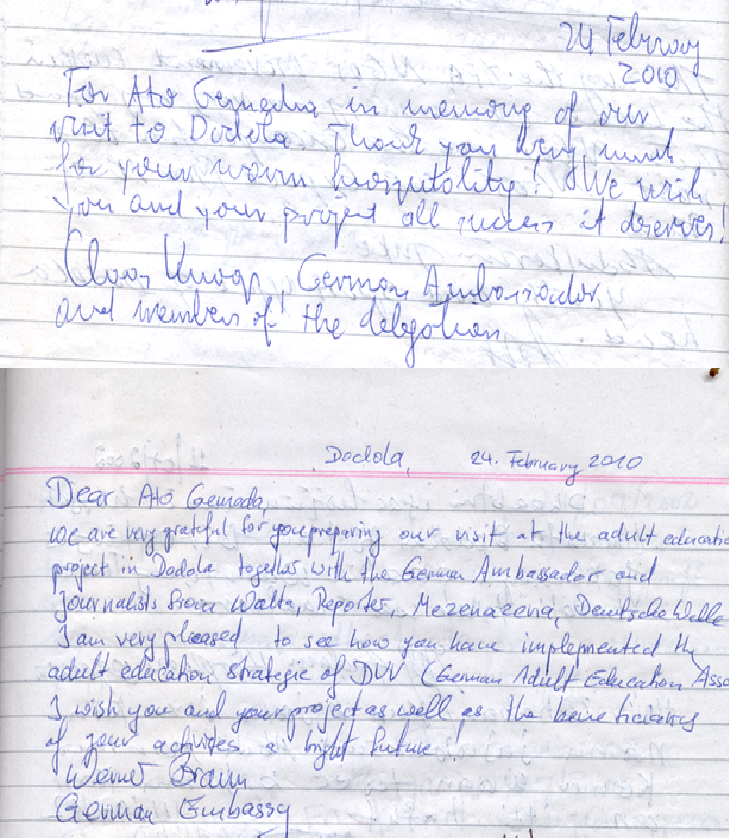 24 February
2010
For Ato Gemedha in memory of our
visit to Dodola. Thank you very much
for your warm hospitality! We wish
you and your project all success it deserves!
Claas Knoop, German Ambassador
and members of the delegation
Dodola, 24. February 2010
Dear Ato Gemeda,
we are very grateful for you preparing our visit at the adult educatio
project in Dodola together with the German Ambassador and
journalists from Walta, Reporter, Mezenazena, Deutsche Welle
I am very pleased to see how you have implemented the
adult education strategie of DVV (German Adult Education Asso
I wish you and your project as well as the beneficiaries
of your activities a bright future!
Werner Braun
German Embassy